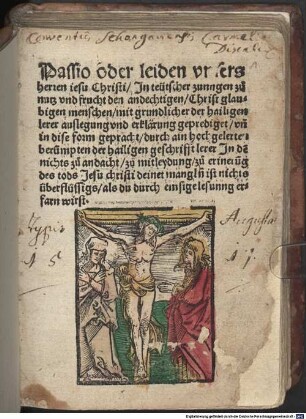 Conventus Schongauensis Carmelit.
Discalc.
Passio oder leiden vnsers
herren iesu Christi/ In teütscher zunngen zů
nutz vnd frucht den andechtigen/ Christ glau-
bigen menschen/ mit grundlicher der hailigen
lerer auslegung vnd erklärung geprediget/ vñ
in dise form gepracht/ durch ain hoch gelerte
berůmpten der hailigen geschrifft lerer In de
nichts zů andacht/ zů mitleydung/ zů erinerũg
des tods Jesu christi deinet manglñ ist nichts
überflüssigs/ als dů durch emsige lesunng er-
farn würst.
Typis Augustae
1 5 1 1.